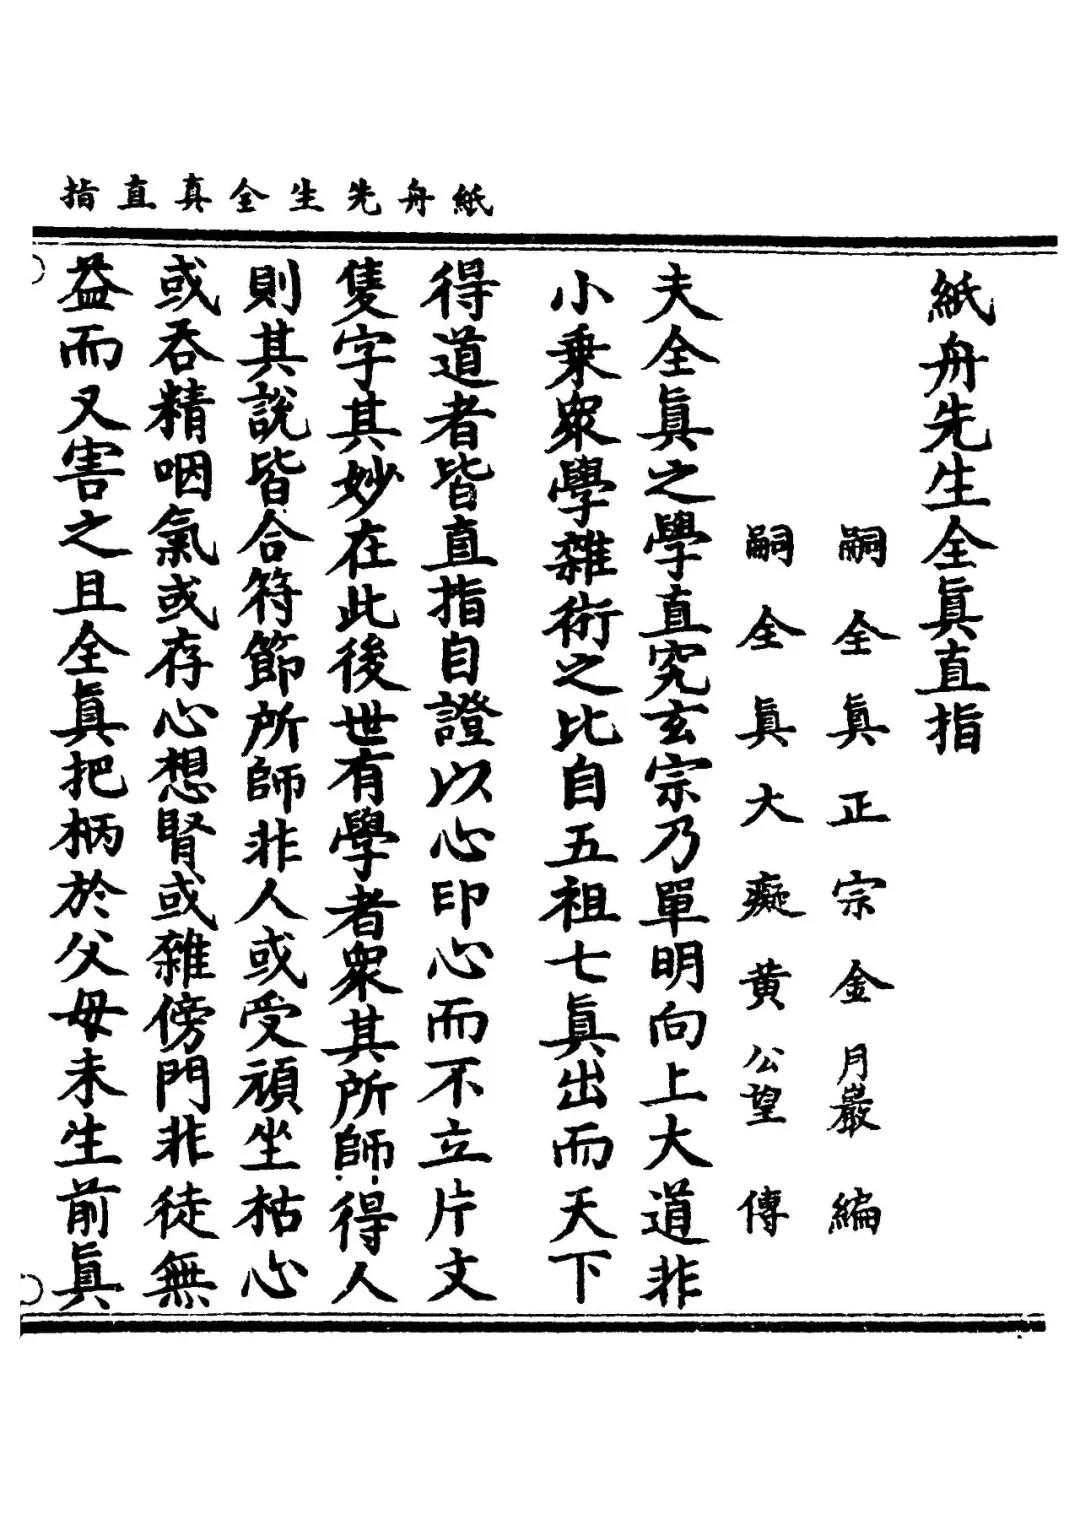 紙舟先生全真直指
紙舟先生全眞直指
嗣全眞正宗金月巖編
嗣全眞大癡黄公望傳
夫全眞之學直究玄宗乃單明向上大道非
小乗衆學雜術之比自五祖七眞出而天下
得道者皆直指自證以心印心而不立片文
隻字其妙在此後世有學者衆其所師得人
則其説皆合符節所師非人或受頑坐枯心
或吞精咽氣或存心想腎或雜傍門非徒無
益而又害之且全眞把柄於父母未生前眞